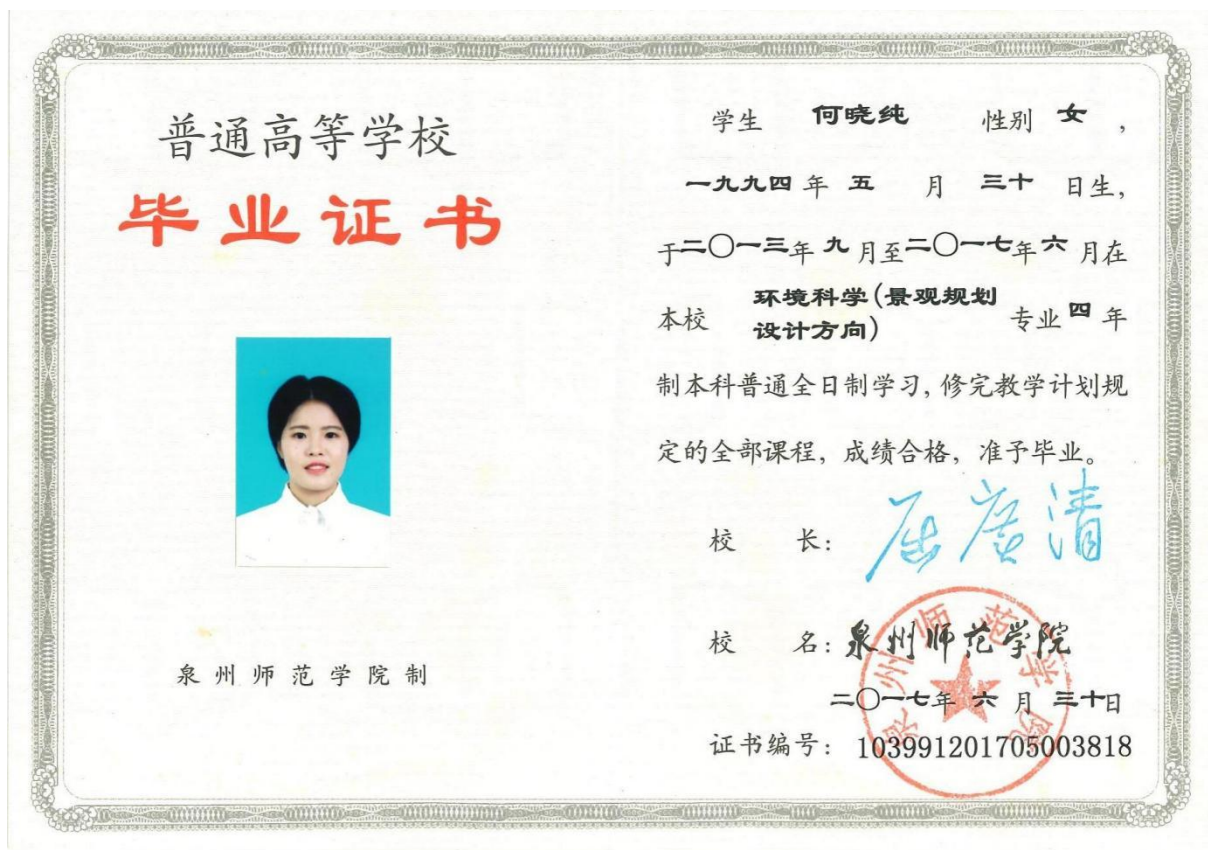 普通高等学校
毕业证书
泉州师范学院制
学生 何晓纯 性别 女，
一九九四年 五 月 三十 日生，
于二〇一三年 九 月至二〇一七年 六 月在
本校 环境科学(景观规划设计方向) 专业 四 年
制本科普通全日制学习，修完教学计划规
定的全部课程，成绩合格，准予毕业。
校 长：屈广清
校 名：泉州师范学院
泉州师范学院
二〇一七年 六 月 三十日
证书编号：103991201705003818